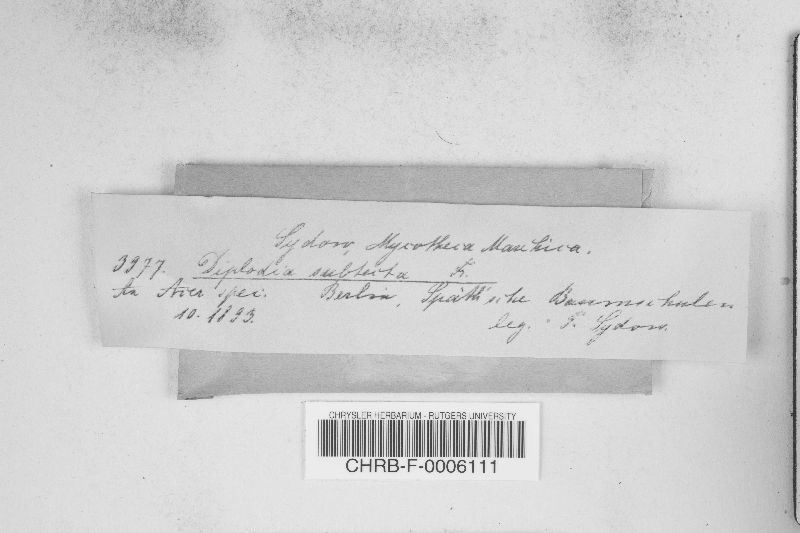 Sydow, Mycotheca Marchica.
3977. Diplodia subtecta Fr.
An Acer spec. Berlin, Späth'sche Baumschulen
10. 1893. leg. P. Sydow.
CHRYSLER HERBARIUM - RUTGERS UNIVERSITY
CHRB-F-0006111